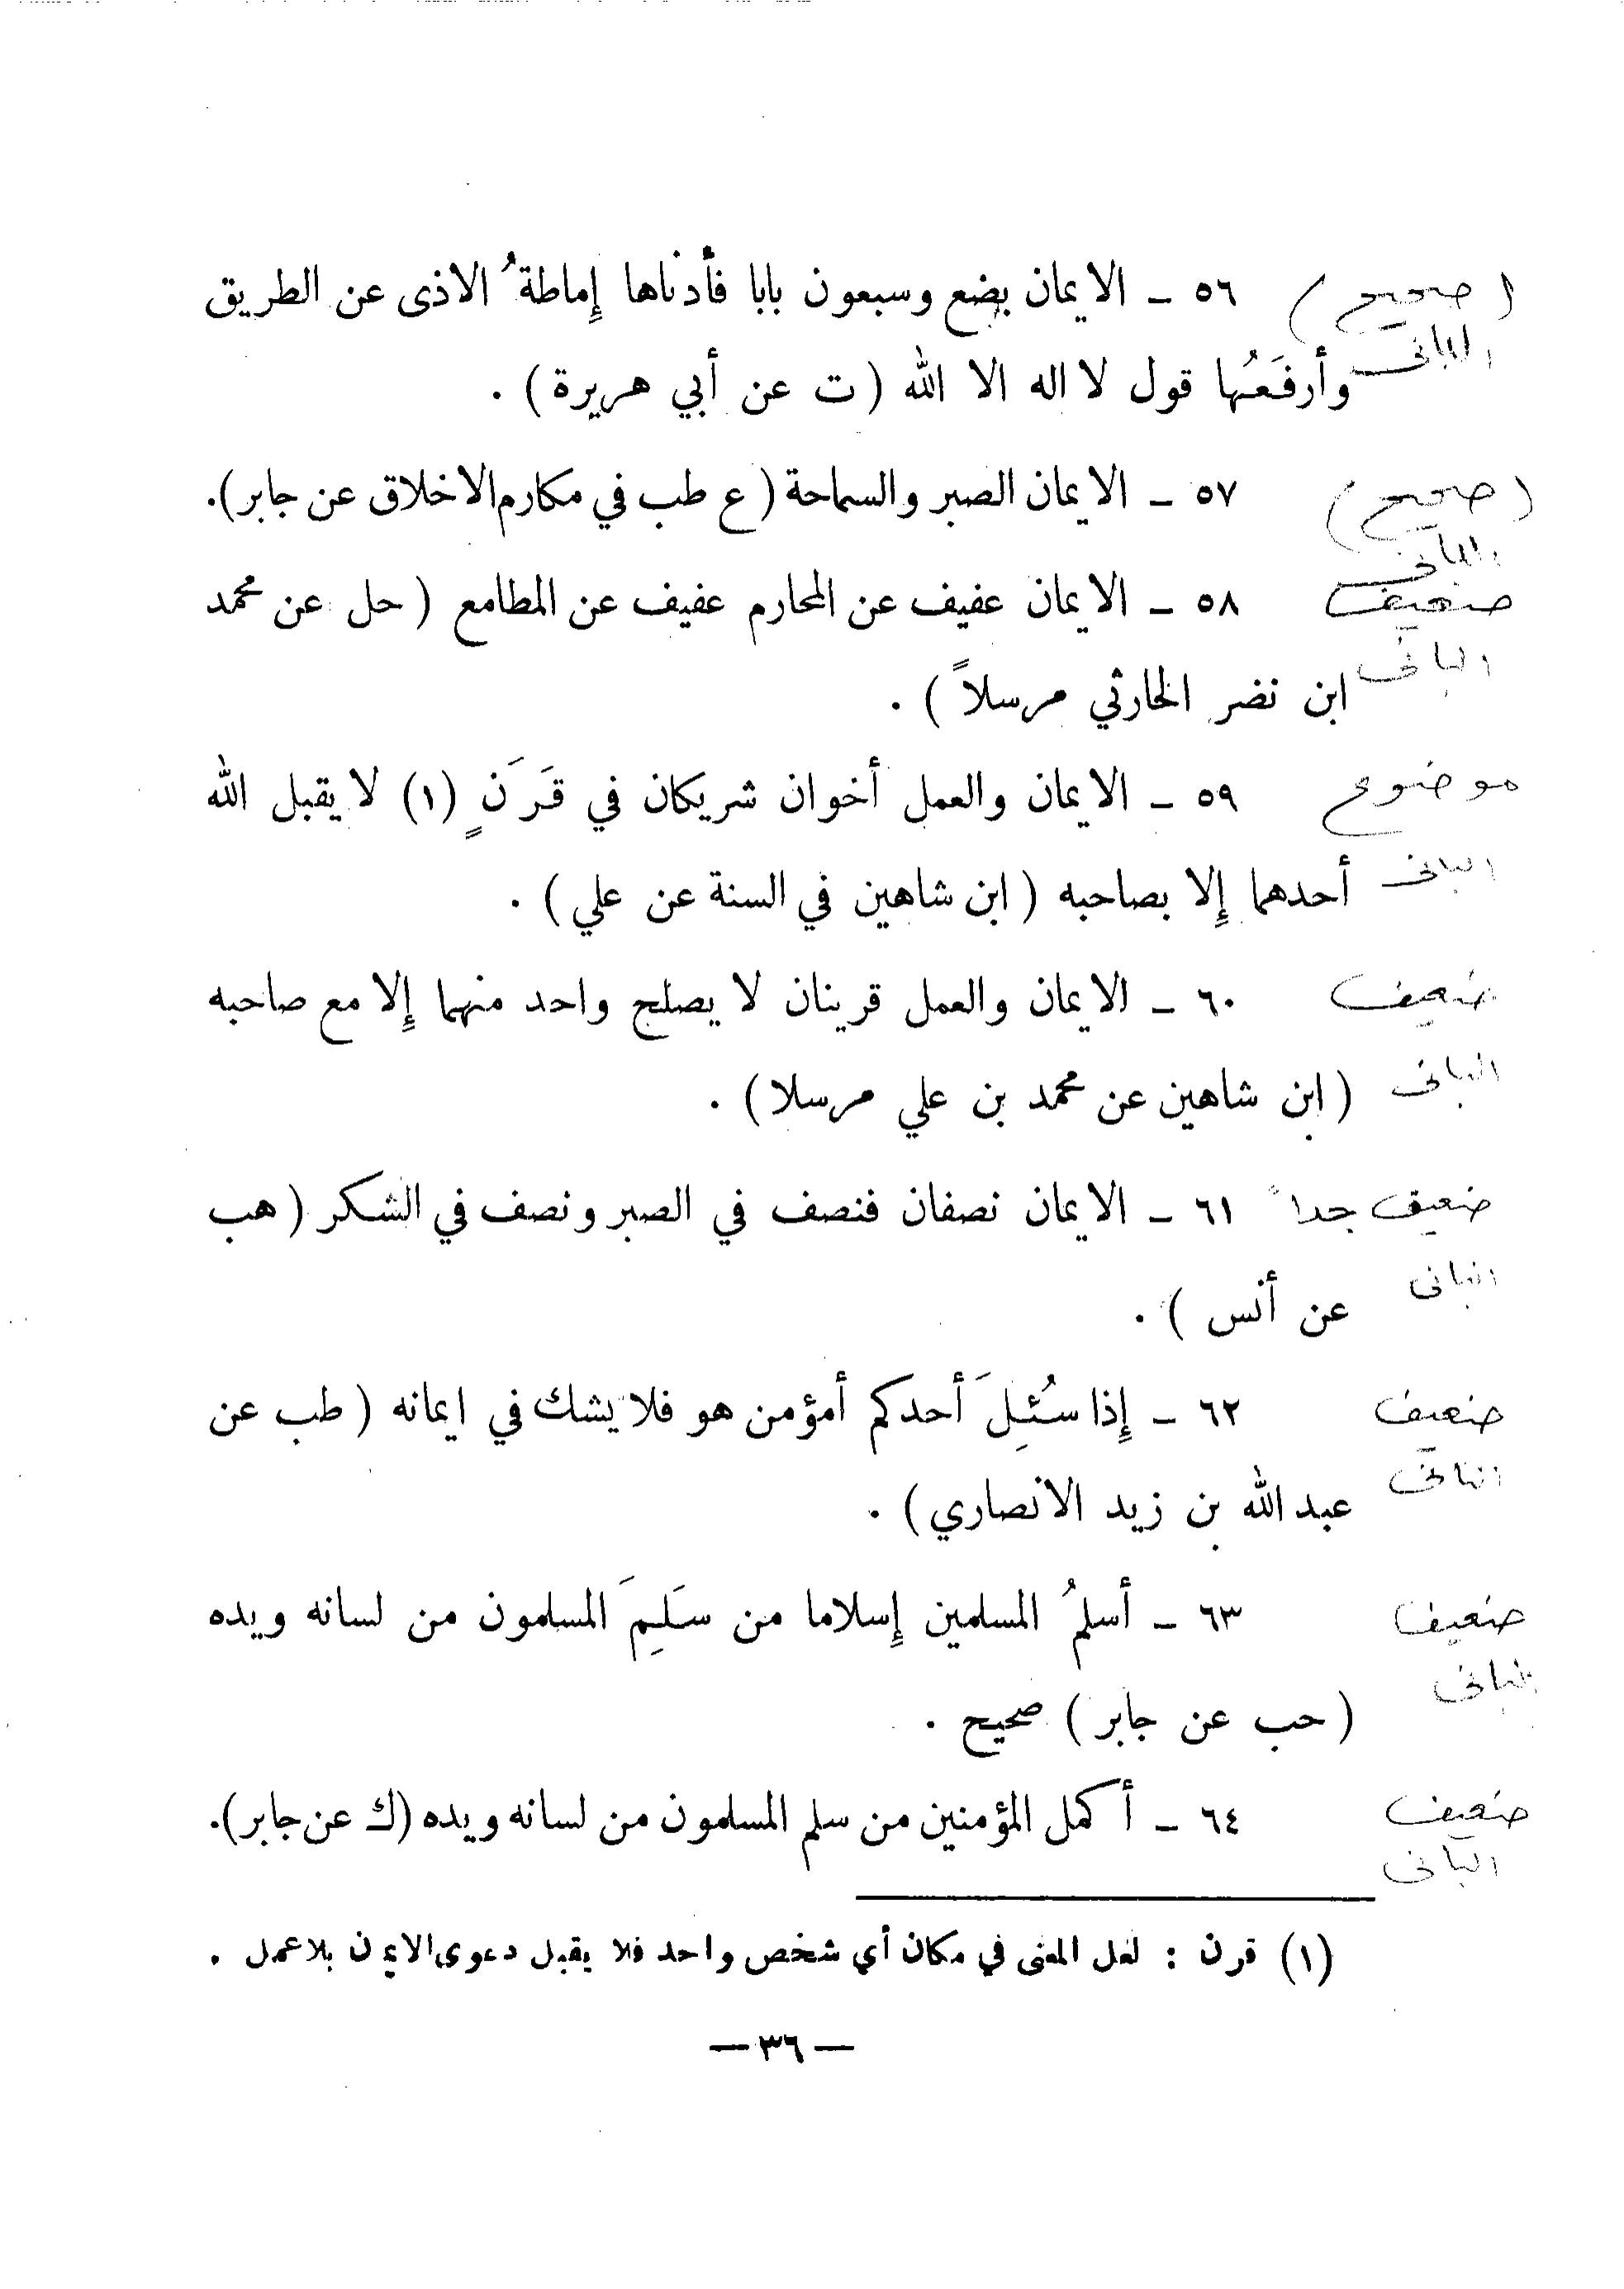 (صحيح) ٥٦ - الايمان بضع وسبعون بابا فأدناها إِماطةُ الاذى عن الطريق
البانى
وأرفَعُها قول لا اله الا الله ( ت عن أبي هريرة ) .
(صحيح) ٥٧ - الايمان الصبر والسماحة ( ع طب في مكارم الاخلاق عن جابر).
البانى
ضعيف ٥٨ - الايمان عفيف عن المحارم عفيف عن المطامع ( حل عن محمد
البانى
ابن نضر الحارثي مرسلاً ) .
موضوع ٥٩ - الايمان والعمل أخوان شريكان في قَرَنٍ (١) لا يقبل الله
البانى
أحدهما إِلا بصاحبه ( ابن شاهين في السنة عن علي ) .
ضعيف ٦٠ - الايمان والعمل قرينان لا يصلح واحد منهما إِلا مع صاحبه
البانى
( ابن شاهين عن محمد بن علي مرسلا ) .
ضعيف جداً ٦١ - الايمان نصفان فنصف في الصبر ونصف في الشكر ( هب
البانى
عن أنس ) .
ضعيف ٦٢ - إِذا سُئِلَ أحدكم أمؤمن هو فلا يشك في ايمانه ( طب عن
البانى
عبد الله بن زيد الانصاري ) .
ضعيف ٦٣ - أسلمُ المسلمين إِسلاما من سَلِمَ المسلمون من لسانه ويده
البانى
( حب عن جابر ) صحيح .
ضعيف ٦٤ - أكمل المؤمنين من سلم المسلمون من لسانه ويده (ك عن جابر).
البانى
(١) قرن : لعل المعنى في مكان أي شخص واحد فلا يقبل دعوى الايمن بلا عمل .
— ٣٦ —